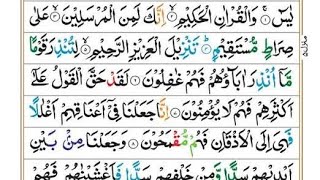 يٰسٓ ۝ وَالْقُرْاٰنِ الْحَكِيْمِ ۝ اِنَّكَ لَمِنَ الْمُرْسَلِيْنَ ۝ عَلٰى
صِرَاطٍ مُّسْتَقِيْمٍ ۝ تَنْزِيْلَ الْعَزِيْزِ الرَّحِيْمِ ۝ لِتُنْذِرَ قَوْمًا
مَّاۤ اُنْذِرَ اٰبَآؤُهُمْ فَهُمْ غٰفِلُوْنَ ۝ لَقَدْ حَقَّ الْقَوْلُ عَلٰۤى
اَكْثَرِهِمْ فَهُمْ لَا يُؤْمِنُوْنَ ۝ اِنَّا جَعَلْنَا فِيْۤ اَعْنَاقِهِمْ اَغْلٰلًا
فَهِيَ اِلَى الْاَذْقَانِ فَهُمْ مُّقْمَحُوْنَ ۝ وَجَعَلْنَا مِنْۢ بَيْنِ
اَيْدِيْهِمْ سَدًّا وَّمِنْ خَلْفِهِمْ سَدًّا فَاَغْشَيْنٰهُمْ فَهُمْ